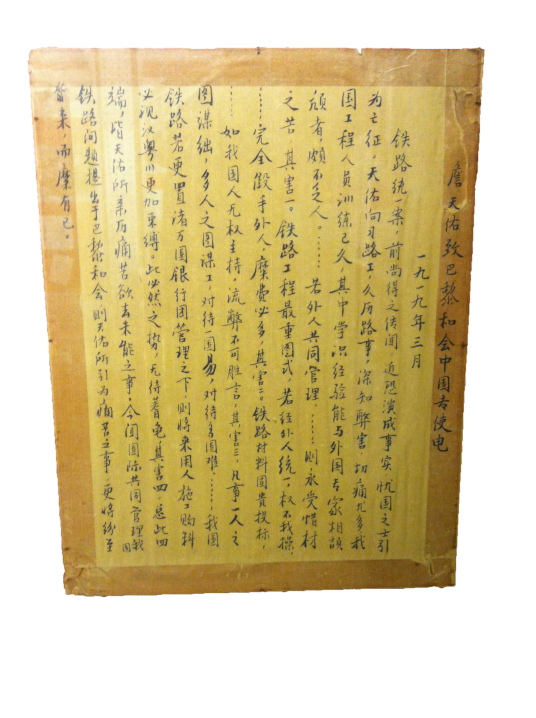 詹天佑致巴黎和会中国专使电
一九一九年三月
铁路统一案，前尚得之传闻，近恐演成事实，忧国之士引
为亡征，天佑向习路工，久历路事，深知弊害，切痛尤多，我
国工程人员训练已久，其中学识经验能与外国专家相颉
颃者颇不乏人。……若外人共同管理，……则永受惜材
之苦，其害一。铁路工程最重图式，若经外人统一，权不我操，
……完全假手外人，糜费必多，其害二。铁路材料固贵投标，
……如我国人无权主持，流弊不可胜言，其害三。凡事一人之
图谋绌，多人之图谋工，对待一国易，对待多国难，……我国
铁路若更置诸万国银行团管理之下，则将来用人施工购料
必视汉粤川更加束缚，此必然之势，无待蓍龟，其害四。总此四
端，皆天佑所亲历痛苦欲去未能之事，今闻国际共同管理我国
铁路问题提出于巴黎和会，则天佑所引为痛苦之事，更将纷至
沓来而糜有已。